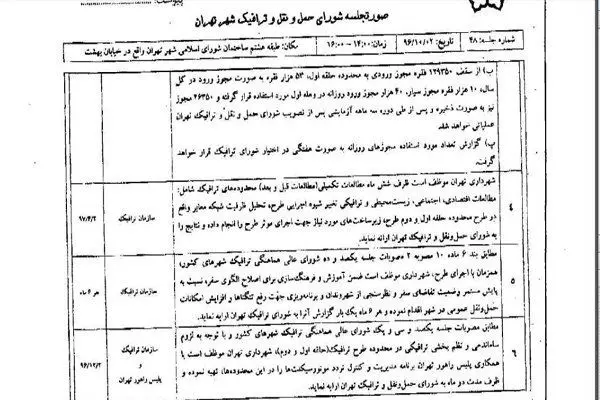 صورتجلسه شورای حمل و نقل و ترافیک شهر تهران
شماره جلسه: ۴۸
تاریخ: ۹۶/۱۰/۰۲
زمان: ۱۴:۰۰ – ۱۶:۰۰
مکان: طبقه هشتم ساختمان شورای اسلامی شهر تهران واقع در خیابان بهشت
ب) از سقف ۱۲۹۳۵۰ فقره مجوز ورودی به محدوده حلقه اول، ۵۳ هزار فقره به صورت مجوز ورود در کل
سال، ۱۰ هزار فقره مجوز سیار، ۴۰ هزار مجوز ورود روزانه در وهله اول مورد استفاده قرار گرفته و ۲۶۳۵۰ مجوز
نیز به صورت ذخیره و پس از طی دوره سه ماهه آزمایشی پس از تصویب شورای حمل و نقل و ترافیک تهران
عملیاتی خواهد شد.
پ) گزارش تعداد مورد استفاده مجوزهای روزانه به صورت هفتگی در اختیار شورای ترافیک قرار خواهد
گرفت.
۴
شهرداری تهران موظف است ظرف شش ماه مطالعات تکمیلی (مطالعات قبل و بعد) محدوده‌های ترافیک شامل:
مطالعات اقتصادی، اجتماعی، زیست‌محیطی و ترافیکی تغییر شیوه اجرایی طرح، تحلیل ظرفیت شبکه معابر واقع
در طرح محدوده حلقه اول و دوم طرح، زیرساخت‌های مورد نیاز جهت اجرای موثر طرح را انجام داده و نتایج را
به شورای حمل‌ونقل و ترافیک تهران ارائه نماید.
سازمان ترافیک
۹۷/۴/۲
۵
مطابق بند ۶ ماده ۱۰ مصوبه ۲ مصوبات جلسه یکصد و ده شورای عالی هماهنگی ترافیک شهرهای کشور،
همزمان با اجرای طرح، شهرداری موظف است ضمن آموزش و فرهنگ‌سازی برای اصلاح الگوی سفر، نسبت به
پایش مستمر وضعیت تقاضای سفر و نظرسنجی از شهروندان و برنامه‌ریزی جهت رفع تنگناها و افزایش امکانات
حمل‌ونقل عمومی در شهر اقدام نموده و هر ۶ ماه یک بار گزارش آنرا به شورای ترافیک تهران ارایه نماید.
سازمان ترافیک
هر ۶ ماه
۶
مطابق مصوبات جلسه یکصد و سی و یک شورای عالی هماهنگی ترافیک شهرهای کشور و با توجه به لزوم
ساماندهی و نظم بخشی ترافیکی در محدوده طرح ترافیک (حلقه اول و دوم)، شهرداری تهران موظف است با
همکاری پلیس راهور تهران برنامه مدیریت و کنترل تردد موتورسیکلت‌ها را در این محدوده‌ها، تهیه نموده و
ظرف مدت دو ماه به شورای حمل‌ونقل و ترافیک تهران ارایه نماید.
سازمان ترافیک
و
پلیس راهور تهران
۹۶/۱۲/۲